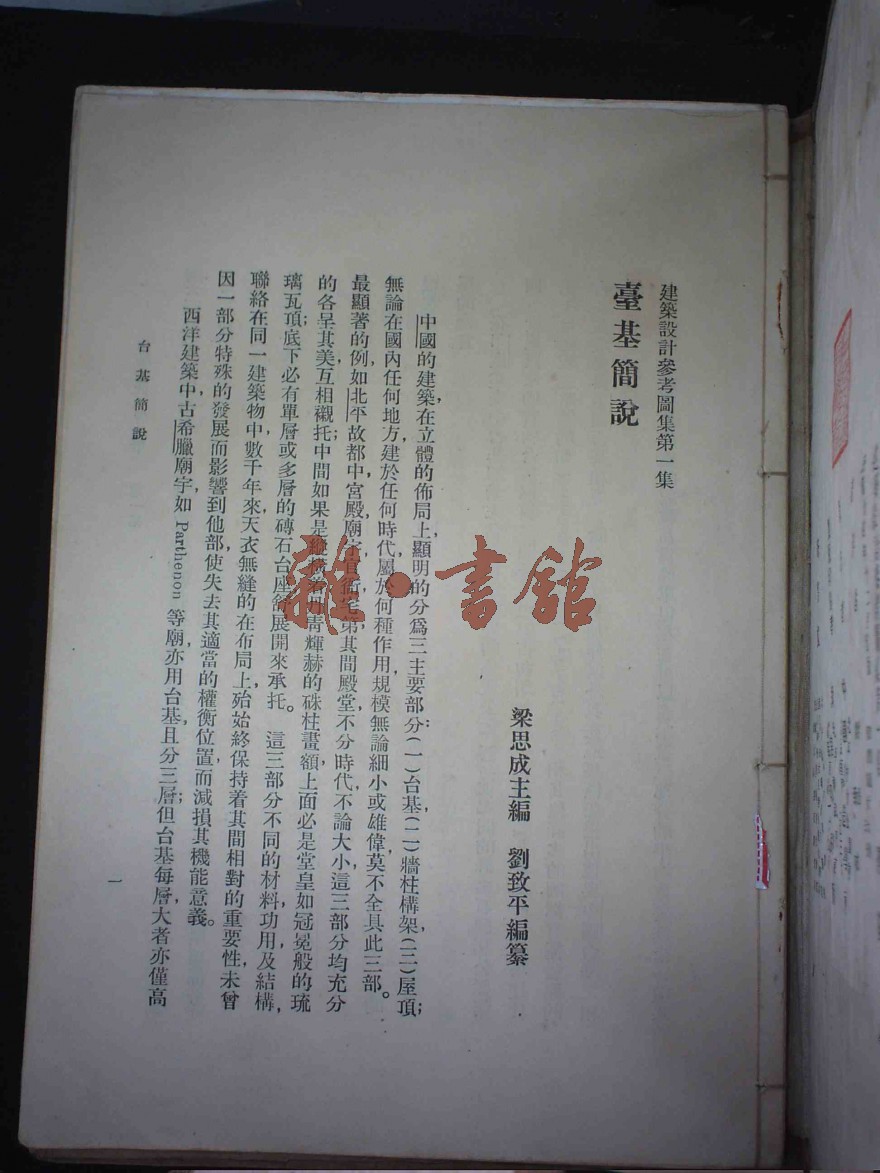 建築設計參考圖集第一集
臺基簡說
梁思成主編　劉致平編纂
中國的建築,在立體的佈局上,顯明的分爲三主要部分:(一)台基,(二)牆柱構架,(三)屋頂;
無論在國內任何地方,建於任何時代,屬於何種作用,規模無論細小或雄偉,莫不全具此三部。
最顯著的例,如北平故都中宮殿,廟宇,官衙,宅第,其間殿堂不分時代,不論大小,這三部分均充分
的各呈其美,互相襯托;中間如果是縱橫着丹青輝赫的硃柱畫額,上面必是堂皇如冠冕般的琉
璃瓦頂;底下必有單層或多層的磚石台座,舒展開來承托。　這三部分不同的材料,功用及結構,
聯絡在同一建築物中,數千年來,天衣無縫的在布局上,殆始終保持着其間相對的重要性,未曾
因一部分特殊的發展而影響到他部,使失去其適當的權衡位置,而減損其機能意義。
西洋建築中,古希臘廟宇,如 Parthenon 等廟,亦用台基,且分三層;但台基每層,大者亦僅高
台基簡說
一
雜·書館